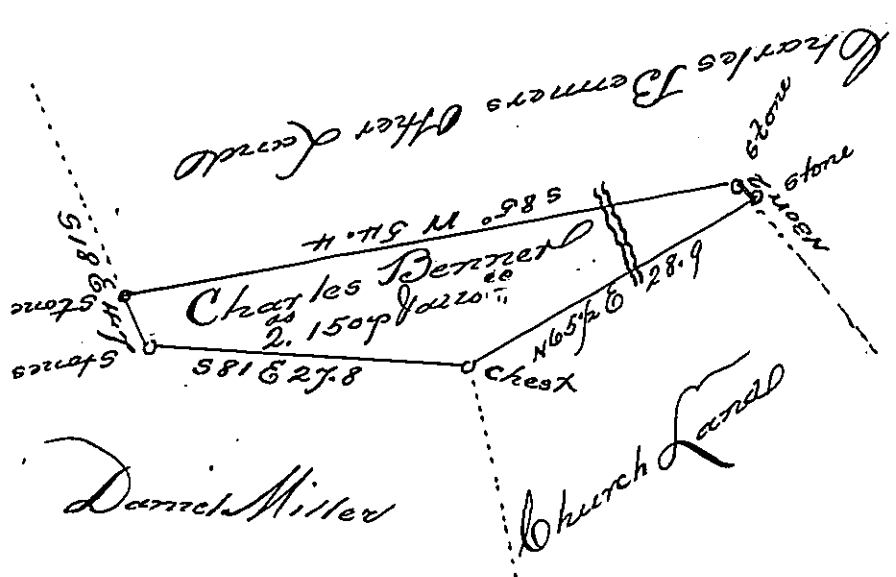 Charles Benners Other Land
Stone
Stone
N30W 2
S 85° W 54.4
S18E 4.7
Stone
Stones
Charles Benner
2. 150p
N65½E 28.9
S81E27.8
Chest
Daniel Miller
Church Land